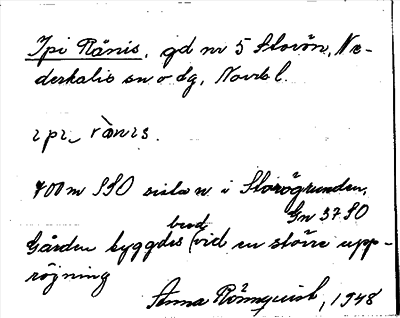 Ipi Ränis, gd nr 5 Storön, Ne-
derkalix sn o dg, Norrb l.
ɪpɪ_ rànɪs.
700 m SSO sidan i Storögrunden,
Gn 37 SO
Gården byggdes bredvid en större upp-
röjning
Anna Rönnquist, 1948